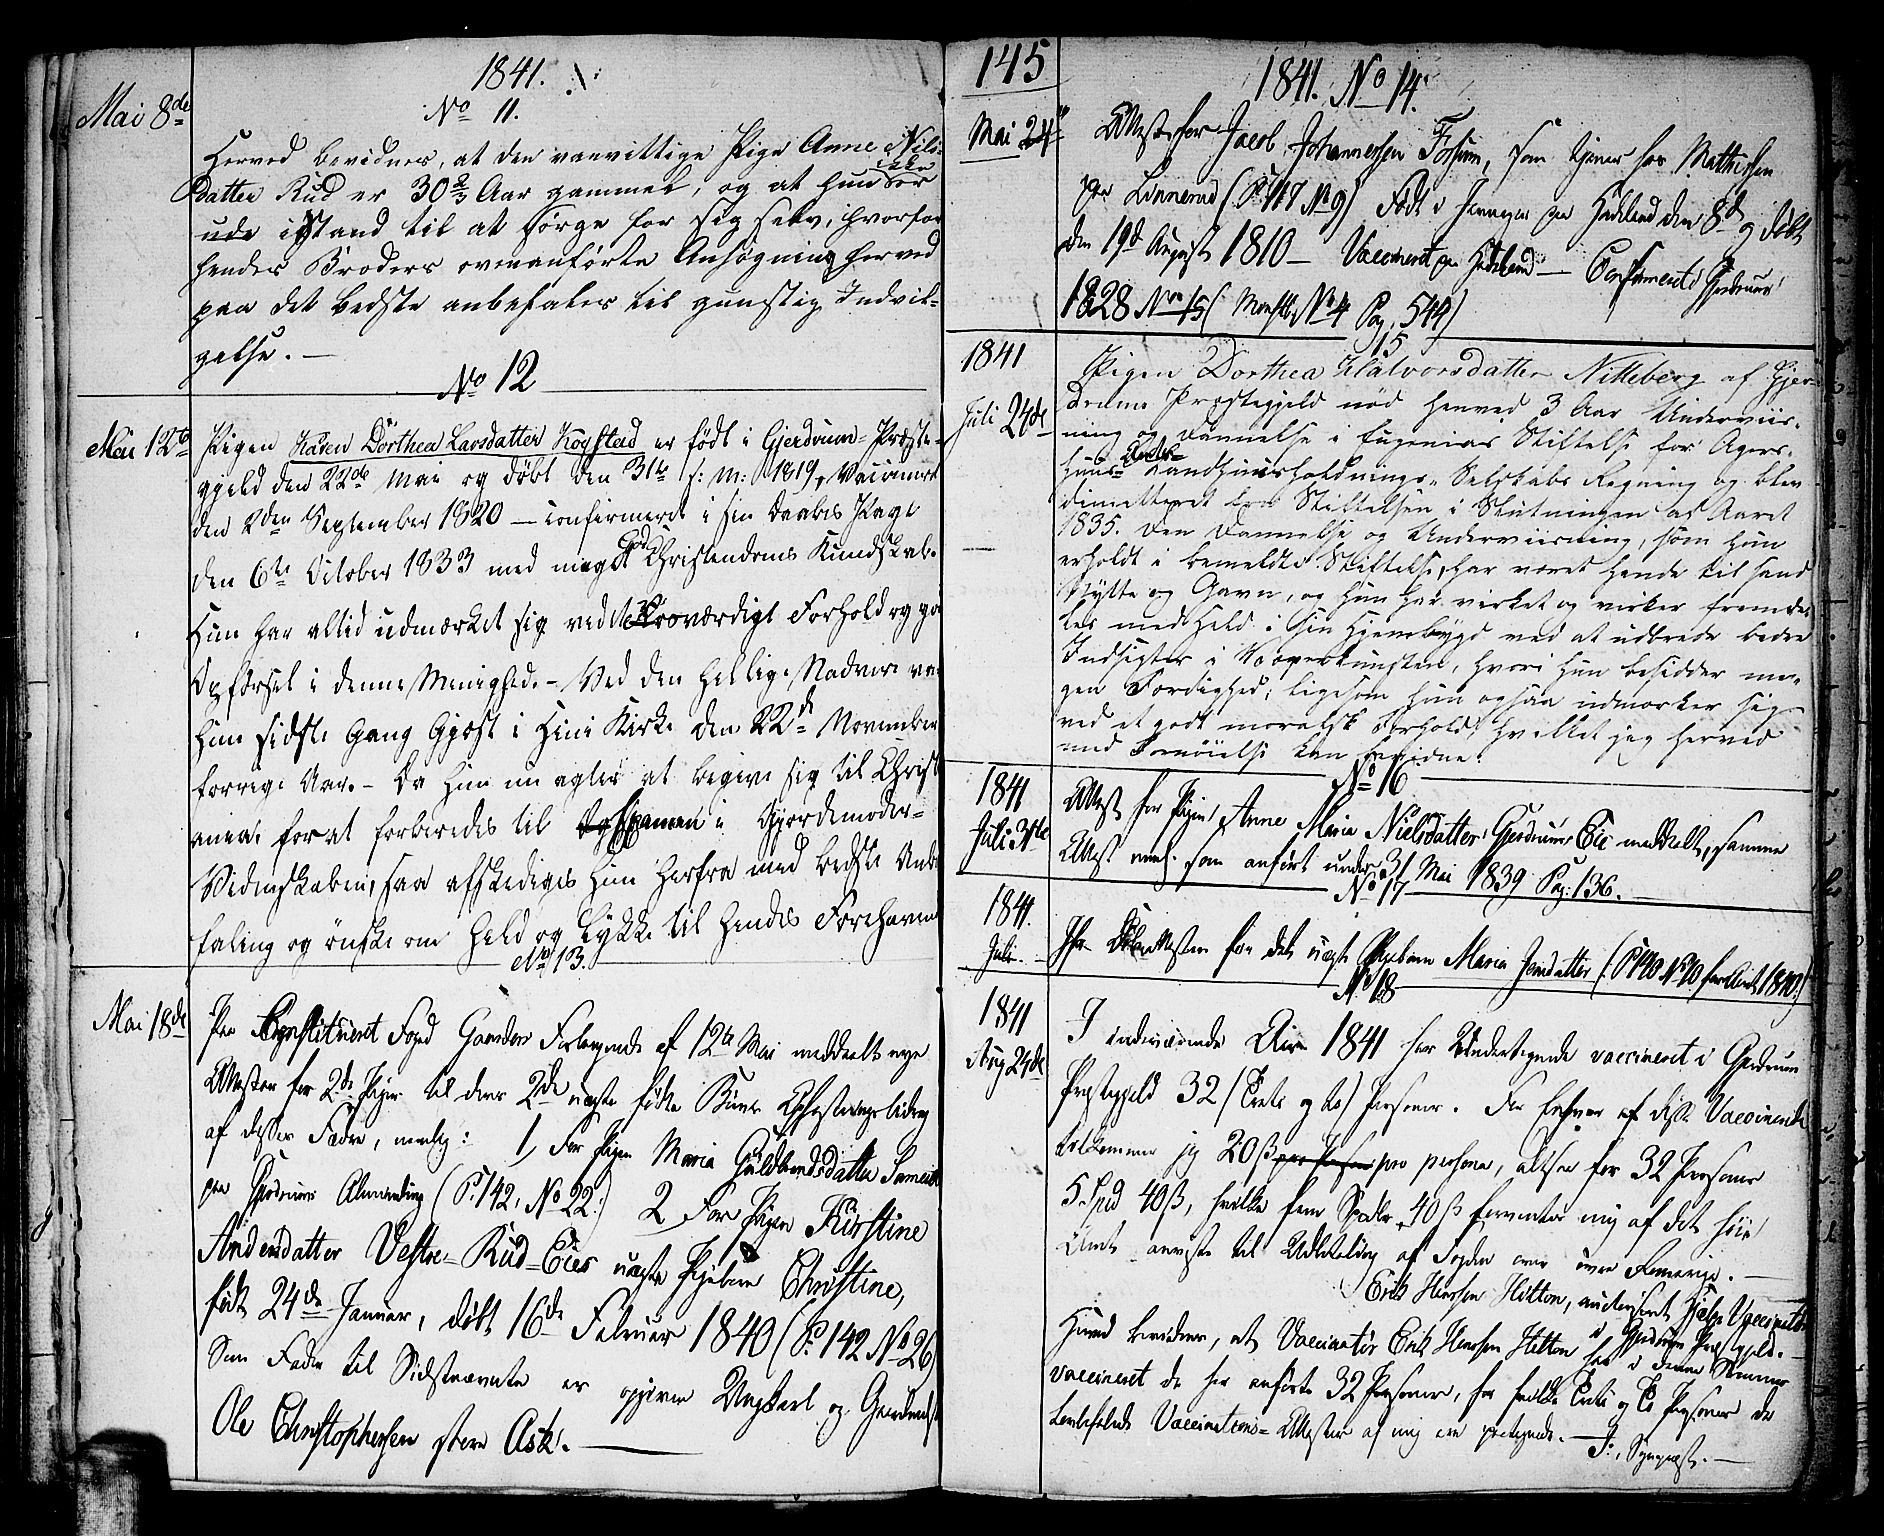 1841.
No 11.
Mai 8de
Herved bevidnes, at den vanvittige Pige Anne Nils-
datter Rud er 30 2/3 Aar gammel, og at hun er
ude istand til at sørge for sig selv, hvorfor
hendes Broders ovenanførte Ansøgning herved
paa det bedste anbefales til gunstig Indvil-
gelse. —
No 12
Mai 12te
Pigen Karen Dorthea Larsdatter Kogstad er født i Gjerdrum-Præste-
gjeld den 22de Mai og døbt den 31te s: M: 1819, Vaccineret
den 2den September 1820 — confirmeret i sin Daabes Pagt
den 6te October 1833 med meget god Christendoms Kundskab.
Hun har altid udmærket sig ved et roesværdigt Forhold og god
Opførsel i denne Menighed. – Ved den hellige Nadvere var
hun sidste Gang Gjæst i Heni Kirke den 22de November
forrige Aar. – Da hun nu agter at begive sig til Christi
ania for at forberedes til Examen i Gjordemoder-
Videnskaben, saa afskediges hun herfra med bedste Anbe
faling og ønske om Held og Lykke til hendes Forehavende
No 13.
Mai 18de
Paa Constitueret Foged Forlangende af 12te Mai meddeelt nye
Attester for 2de Piger til deres 2de uægte fødte Børns Opfostringsbidrag
af disses Fædre, nemlig: 1, For Pigen Maria Guldbrandsdatter
paa Gjerdrums Almending (P. 142, No 22.) 2 For Pigen Kirstine
Andersdatter Vestre-Rud-Eies uægte Pigebarn Christine,
født 24de Januar, døbt 16de Februar 1840 (P. 142 No 26)
Som Fader til Sidstnævnte er opgiven Ungkarl og
Ole Christophersen Ask. —
145
1841. No 14.
Mai 24
Attest for Jacob Johannessen Fossum, som tjener hos Mathissen
paa Linnerud (P. 117 No 9) Født i paa Hadeland den 8de og døbt
den 19de August 1810 — Vaccineret paa Hadeland — Confirmeret i Gjerdrum
1828 No 15 ( No 4 Pag. 544)
15
1841
Juli 24de
Pigen Dorthea Halvorsdatter Nitteberg af Gjer-
drums Præstegjeld nød henved 3 Aar Underviis-
ning og Dannelse i Eugenias Stiftelse for Agers-
huus Landhuusholdnings-Selskabs Regning og blev
dimitteret fra Stiftelsen i Slutningen af Aaret
1835. Den Dannelse og Underviisning, som hun
erholdt i bemeldte Stiftelse, har været hende til sand
Nytte og Gavn, og hun har virket og virker fremde-
les med Held i sin Hjembygd ved at udbrede bedre
Indsigter i Væverkunsten, hvori hun besidder me-
gen Færdighed; ligesom hun ogsaa udmærker sig
ved et godt moralsk Forhold, hvilket jeg herved
med Fornøielse kan bevidne.
No 16
1841
Juli 31te
Attest for Pigen Anne Maria Nielsdatter Gjerdrums-Eie meddeelt, samme
Attest som anført under 31 Mai 1839 Pag: 136.
No 17
1841.
Juli
for det uægte Pigebarn Maria Jensdatter (P. 140 No 10 for Aaret 1840.)
No 18
1841
Aug 24de
I indeværende Aar 1841 har Undertegnede vaccineret i Gjerdrum
Præstegjeld 32 (Treti og to) Personer. For Enhver af disse Vaccinerede
tilkommer jeg 20 ß pro persona, altsaa for 32 Personer
5 Spd 40 ß, hvilke fem Spdlr 40 ß forventes mig af det høie
Amt anviist til Udbetaling af Fogden over øvre Romerige. —
Erik Hansen Hilton, autoriseret Hjelpe Vaccinatør
i Gjerdrum Præstegjeld. —
Herved bevidnes, at Vaccinatør Erik Hansen Hilton har i denne Sommer
vaccineret de her anførte 32 Personer, for hvilke Treti og To Personer de
befalede Vaccinations-Attester af mig ere paategnede. —
J:, Sognepræst. —